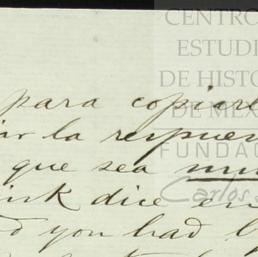 CENTRO
ESTUDI
DE HISTO
DE MÉX
FUNDAC
Carlos S
para copiar
la respues
que sea mu
dice
you had